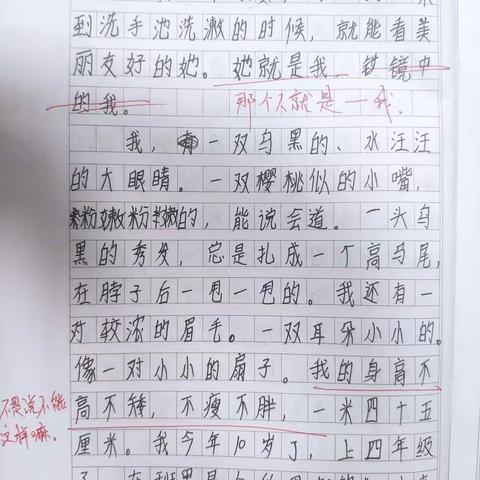 到洗手池洗漱的时候，就能看美
丽友好的她。她就是我——镜中
的我。
那个人就是一我.
我，有一双乌黑的、水汪汪
的大眼睛。一双樱桃似的小嘴，
粉嫩粉嫩的，能说会道。一头乌
黑的秀发，总是扎成一个高马尾，
在脖子后一甩一甩的。我还有一
对较浓的眉毛。一双耳朵小小的。
像一对小小的扇子。我的身高不
高不矮，不瘦不胖，一米四十五
不能
这样嘛。
厘米。我今年10岁了，上四年级